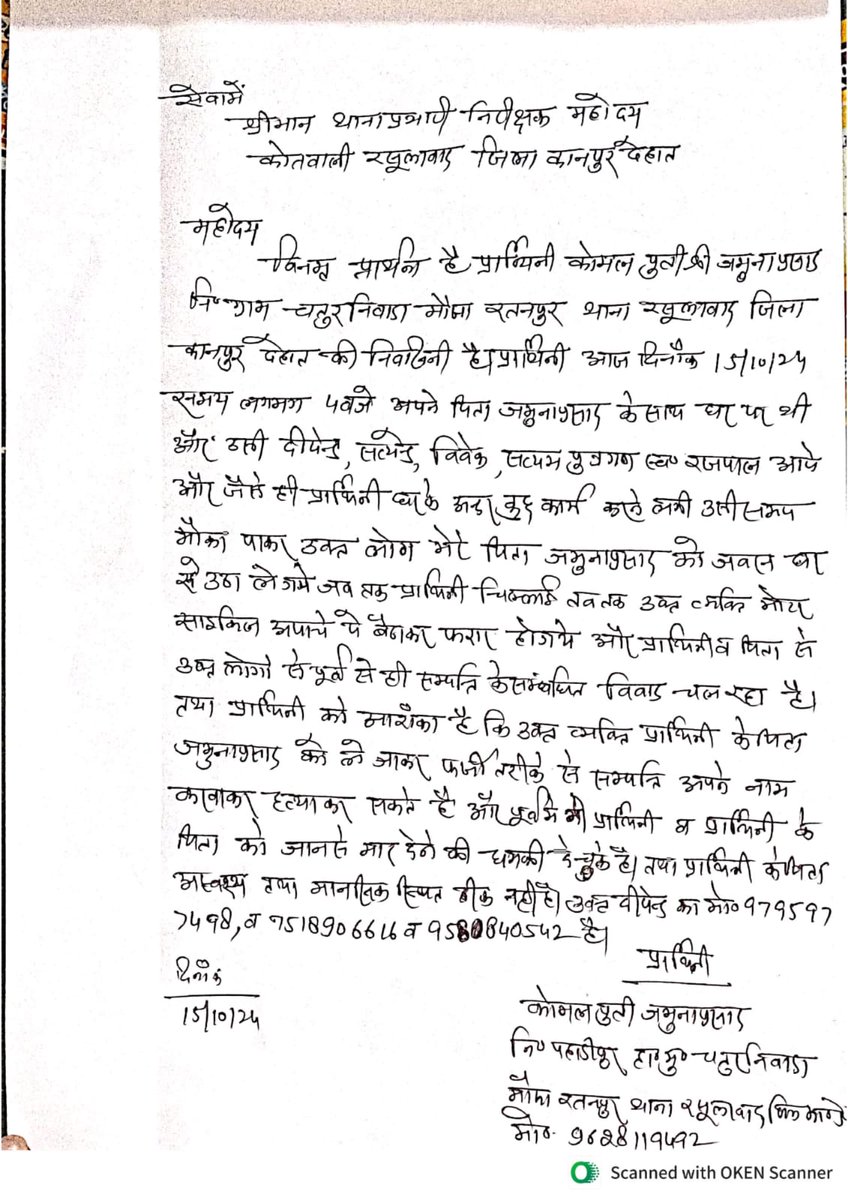 सेवामें
श्रीमान थानाप्रभारी निरीक्षक महोदय
कोतवाली रसूलाबाद जिला कानपुर देहात
महोदय
विनम्र प्रार्थना है प्रार्थिनी कोमल पुत्री श्री जमुनाप्रसाद
नि० ग्राम चतुरनिवादा मौजा रतनपुर थाना रसूलाबाद जिला
कानपुर देहात की निवासिनी है। प्रार्थिनी आज दिनाँक 15/10/24
समय लगभग 4 बजे अपने पिता जमुनाप्रसाद के साथ घर पर थी
और तभी दीपेन्द्र, सत्येन्द्र, विवेक, सत्यम पुत्रगण स्व० राजपाल आये
और जैसे ही प्रार्थिनी घर के अन्दर कुछ कार्य करने लगी उसी समय
मौका पाकर उक्त लोग मेरे पिता जमुनाप्रसाद को जबरन घर
से उठा ले गये जब तक प्रार्थिनी चिल्लाई तब तक उक्त व्यक्ति मोटर
साइकिल अपाचे पे बैठाकर फरार हो गये और प्रार्थिनी व पिता से
उक्त लोगो से पूर्व से ही सम्पत्ति के संम्बधित विवाद चल रहा है।
तथा प्रार्थिनी को आशंका है कि उक्त व्यक्ति प्रार्थिनी के पिता
जमुनाप्रसाद को ले जाकर फर्जी तरीके से सम्पत्ति अपने नाम
करवाकर हत्या कर सकते है और पूर्व मे भी प्रार्थिनी व प्रार्थिनी के
पिता को जान से मार देने की धमकी दे चुके है। तथा प्रार्थिनी के पिता
अस्वस्थ तथा मानसिक स्थित ठीक नहीं है। उक्त दीपेन्द्र का मो० 979597
7498, व 9518906616 व 9580840542 है।
प्रार्थिनी
दिनाँक
15/10/24
कोमल पुत्री जमुनाप्रसाद
नि० पहाडीपुर हा० मु० चतुरनिवादा
मौजा रतनपुर थाना रसूलाबाद
मो० 9628119492
Scanned with OKEN Scanner